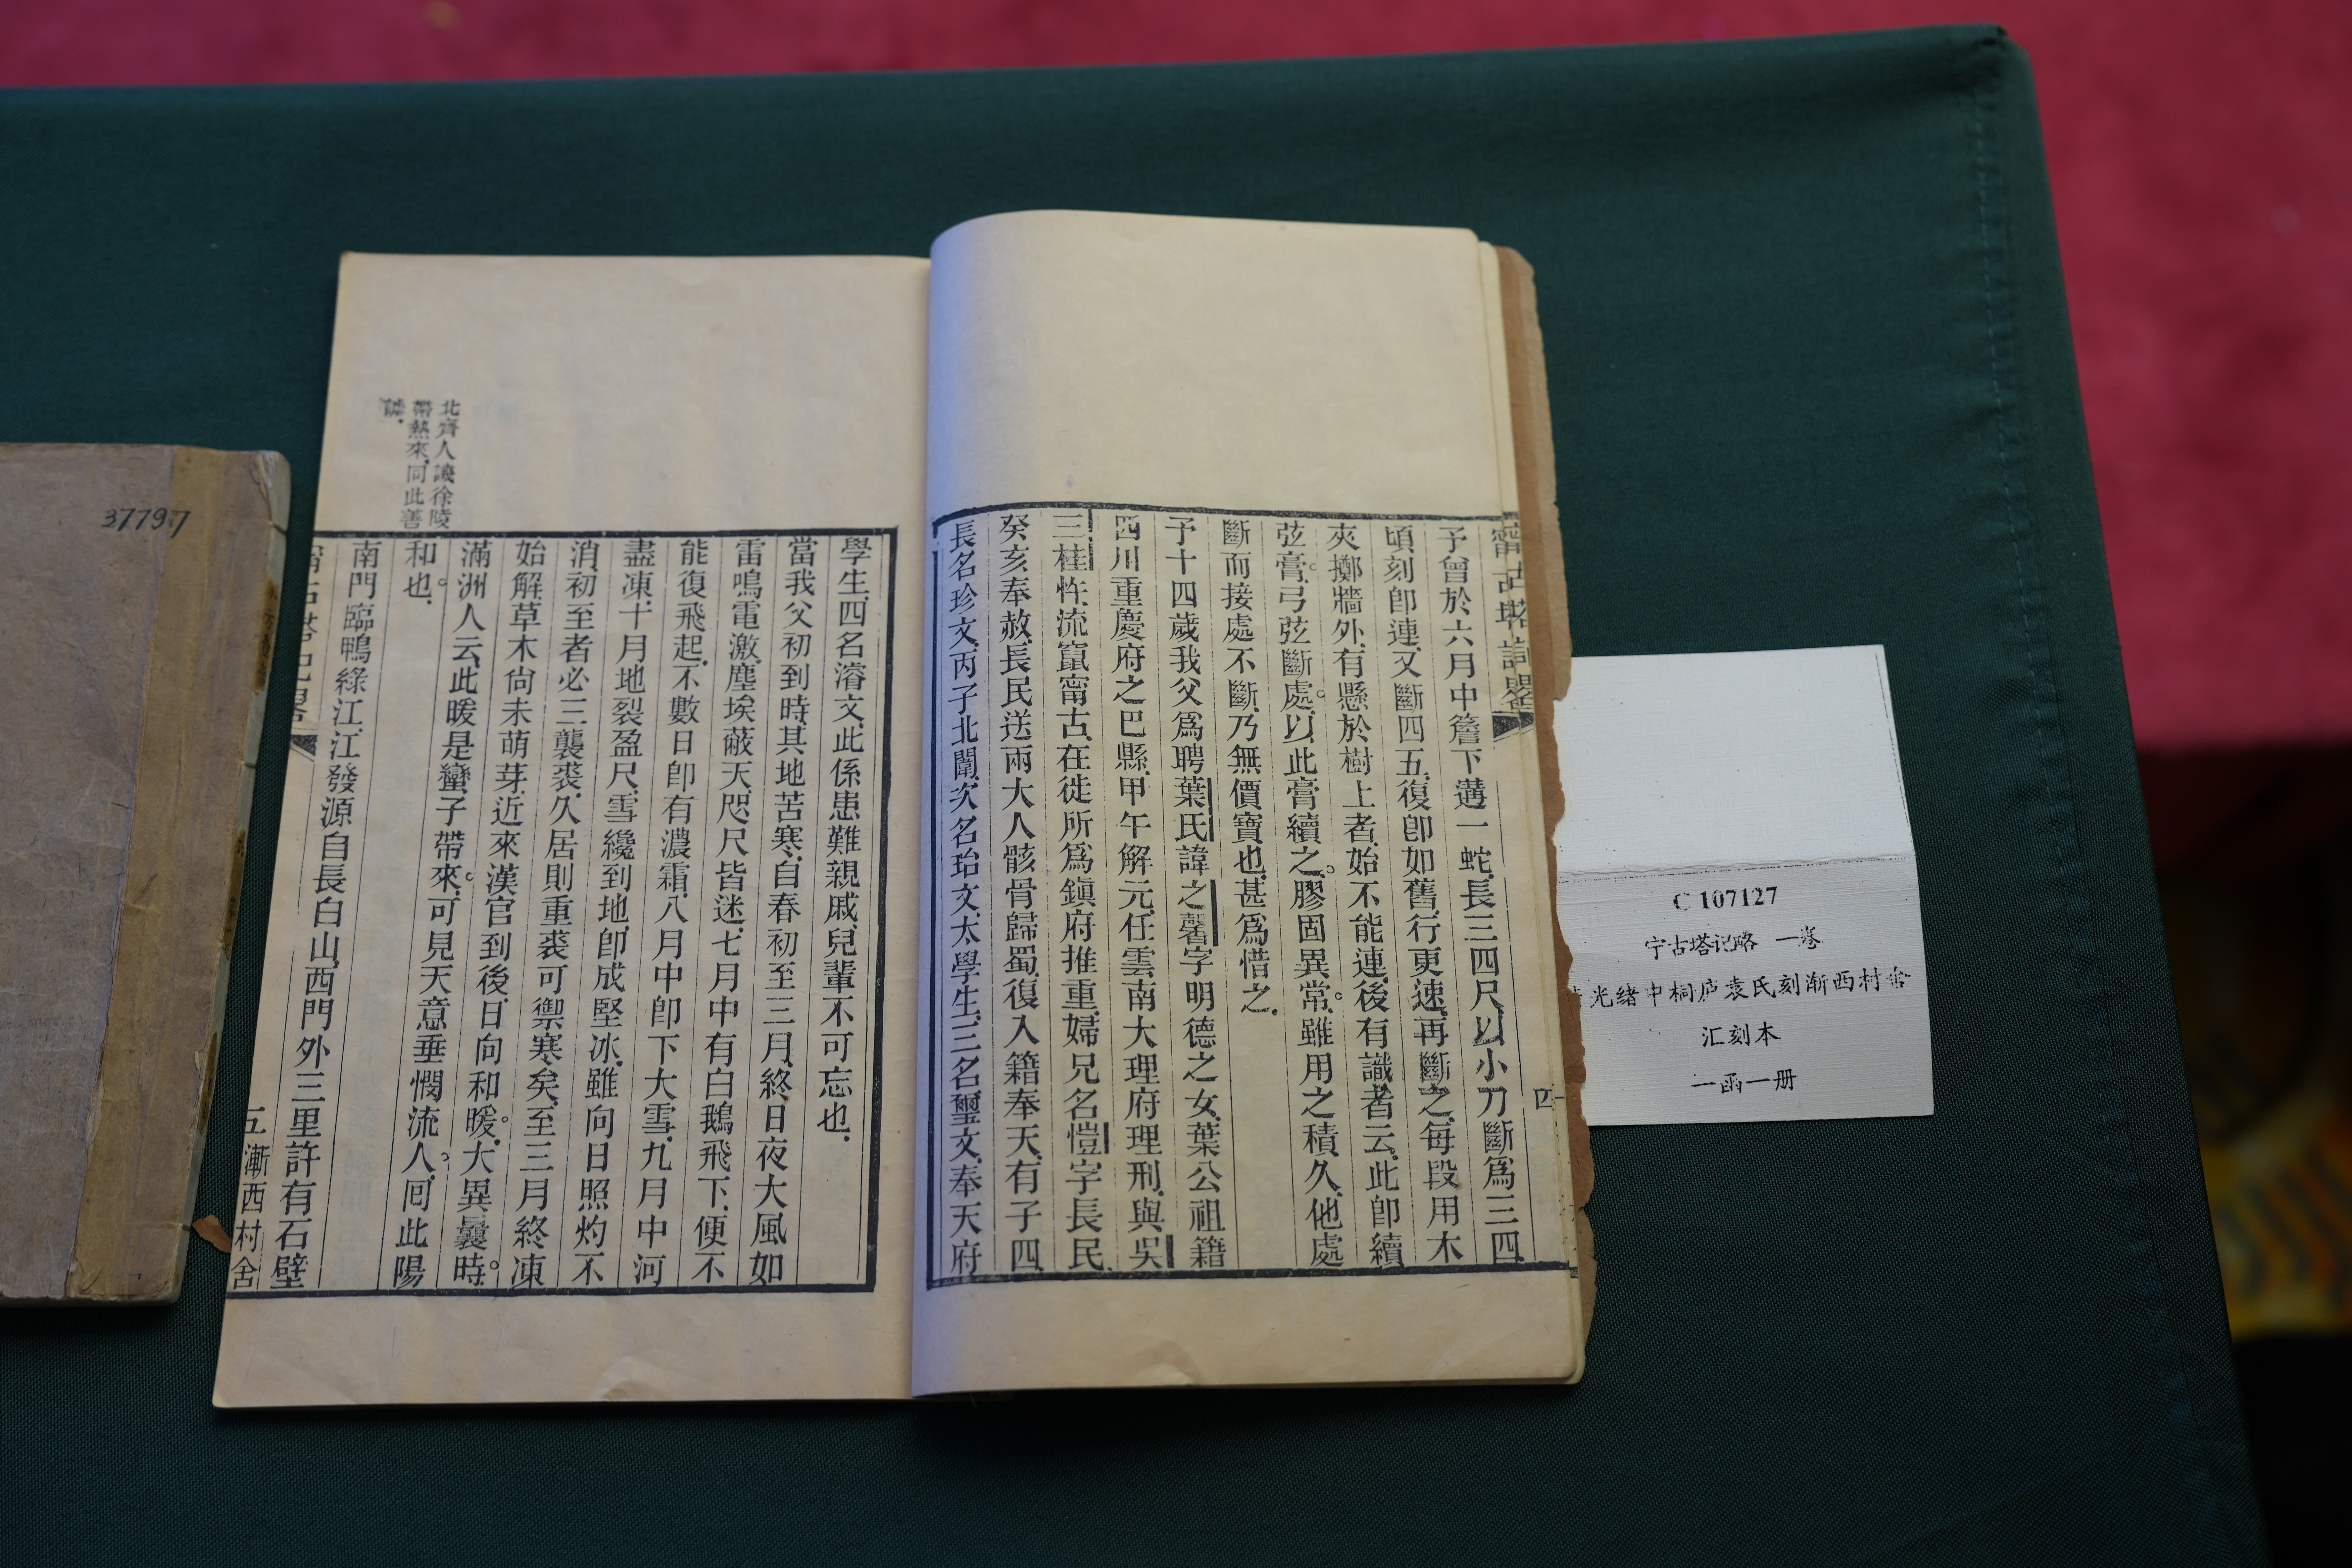 甯古塔記略
四
予曾於六月中簷下遘一蛇長三四尺以小刀斷爲三四
頃刻卽連又斷四五復卽如舊行更速再斷之每段用木
夾擲牆外有懸於樹上者始不能連後有識者云此卽續
弦膏弓弦斷處以此膏續之膠固異常雖用之積久他處
斷而接處不斷乃無價寶也甚爲惜之
予十四歲我父爲聘葉氏諱之馨字明德之女葉公祖籍
四川重慶府之巴縣甲午解元任雲南大理府理刑與吳
三桂忤流竄甯古在徙所爲鎭府推重婦兄名愷字長民
癸亥奉赦長民送兩大人骸骨歸蜀復入籍奉天有子四
長名珍文丙子北闈次名珆文太學生三名璽文奉天府
學生四名濬文此係患難親戚兒輩不可忘也
當我父初到時其地苦寒自春初至三月終日夜大風如
雷鳴電激塵埃蔽天咫尺皆迷七月中有白鵝飛下便不
能復飛起不數日卽有濃霜八月中卽下大雪九月中河
盡凍十月地裂盈尺雪纔到地卽成堅冰雖向日照灼不
消初至者必三襲裘久居則重裘可禦寒矣至三月終凍
始解草木尙未萌芽近來漢官到後日向和暖大異曩時
滿洲人云此暖是蠻子帶來可見天意垂憫流人囘此陽
和也
南門臨鴨綠江江發源自長白山西門外三里許有石壁
北齊人譏徐陵
帶熱來同此善
五
漸西村舍
37797
C 107127
宁古塔记略 一卷
光绪中桐庐袁氏刻渐西村舍
汇刻本
一函一册